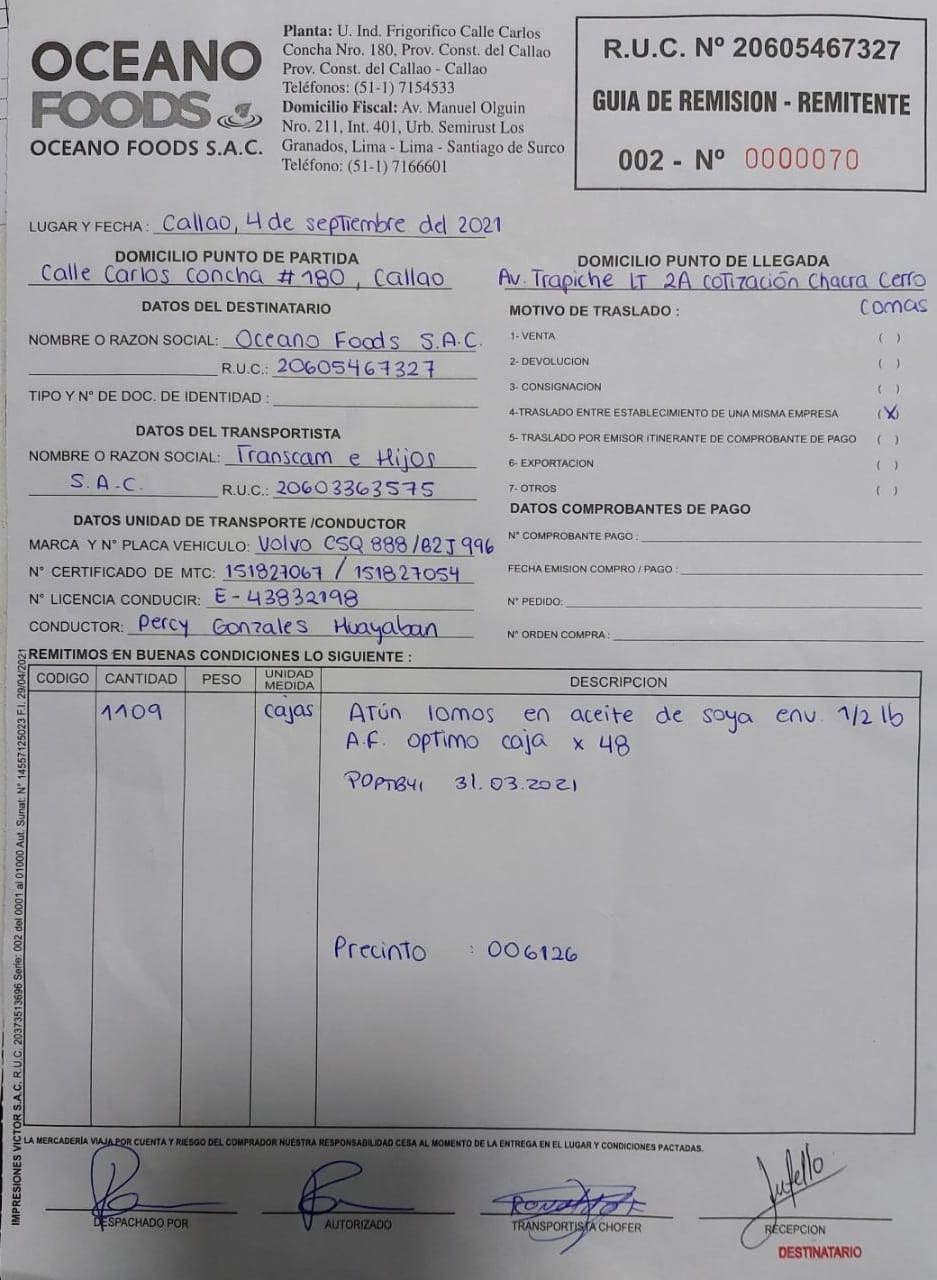 OCEANO
FOODS
OCEANO FOODS S.A.C.
Planta: U. Ind. Frigorifico Calle Carlos
Concha Nro. 180, Prov. Const. del Callao
Prov. Const. del Callao - Callao
Teléfonos: (51-1) 7154533
Domicilio Fiscal: Av. Manuel Olguin
Nro. 211, Int. 401, Urb. Semirust Los
Granados, Lima - Lima - Santiago de Surco
Teléfono: (51-1) 7166601
R.U.C. Nº 20605467327
GUIA DE REMISION - REMITENTE
002 - Nº 0000070
LUGAR Y FECHA : Callao, 4 de septiembre del 2021
DOMICILIO PUNTO DE PARTIDA
Calle Carlos Concha # 180, Callao
DOMICILIO PUNTO DE LLEGADA
Av. Trapiche LT 2A Cotización Chacra Cerro
Comas
DATOS DEL DESTINATARIO
NOMBRE O RAZON SOCIAL: Oceano Foods S.A.C.
R.U.C.: 20605467327
TIPO Y N° DE DOC. DE IDENTIDAD :
DATOS DEL TRANSPORTISTA
NOMBRE O RAZON SOCIAL: Transcam e Hijos
S.A.C. R.U.C.: 20603363575
DATOS UNIDAD DE TRANSPORTE /CONDUCTOR
MARCA Y N° PLACA VEHICULO: Volvo CSQ 888/B2J 996
N° CERTIFICADO DE MTC: 151827067 / 151827054
N° LICENCIA CONDUCIR: E-43832198
CONDUCTOR: Percy Gonzales Huayaban
MOTIVO DE TRASLADO :
1- VENTA ( )
2- DEVOLUCION ( )
3- CONSIGNACION ( )
4-TRASLADO ENTRE ESTABLECIMIENTO DE UNA MISMA EMPRESA (X)
5- TRASLADO POR EMISOR ITINERANTE DE COMPROBANTE DE PAGO ( )
6- EXPORTACION ( )
7- OTROS ( )
DATOS COMPROBANTES DE PAGO
N° COMPROBANTE PAGO :
FECHA EMISION COMPRO / PAGO :
N° PEDIDO:
N° ORDEN COMPRA :
REMITIMOS EN BUENAS CONDICIONES LO SIGUIENTE :
CODIGO CANTIDAD PESO UNIDAD MEDIDA DESCRIPCION
1109 cajas Atún lomos en aceite de soya env. 1/2 lb
A.F. optimo caja x 48
POPTB41 31.03.2021
Precinto : 006126
LA MERCADERÍA VIAJA POR CUENTA Y RIESGO DEL COMPRADOR NUESTRA RESPONSABILIDAD CESA AL MOMENTO DE LA ENTREGA EN EL LUGAR Y CONDICIONES PACTADAS.
DESPACHADO POR
AUTORIZADO
TRANSPORTISTA CHOFER
RECEPCION
DESTINATARIO
IMPRESIONES VICTOR S.A.C. R.U.C. 20373513696 Serie: 002 del 0001 al 01000 Aut. Sunat: N° 14557125023 F.I. 29/04/2021